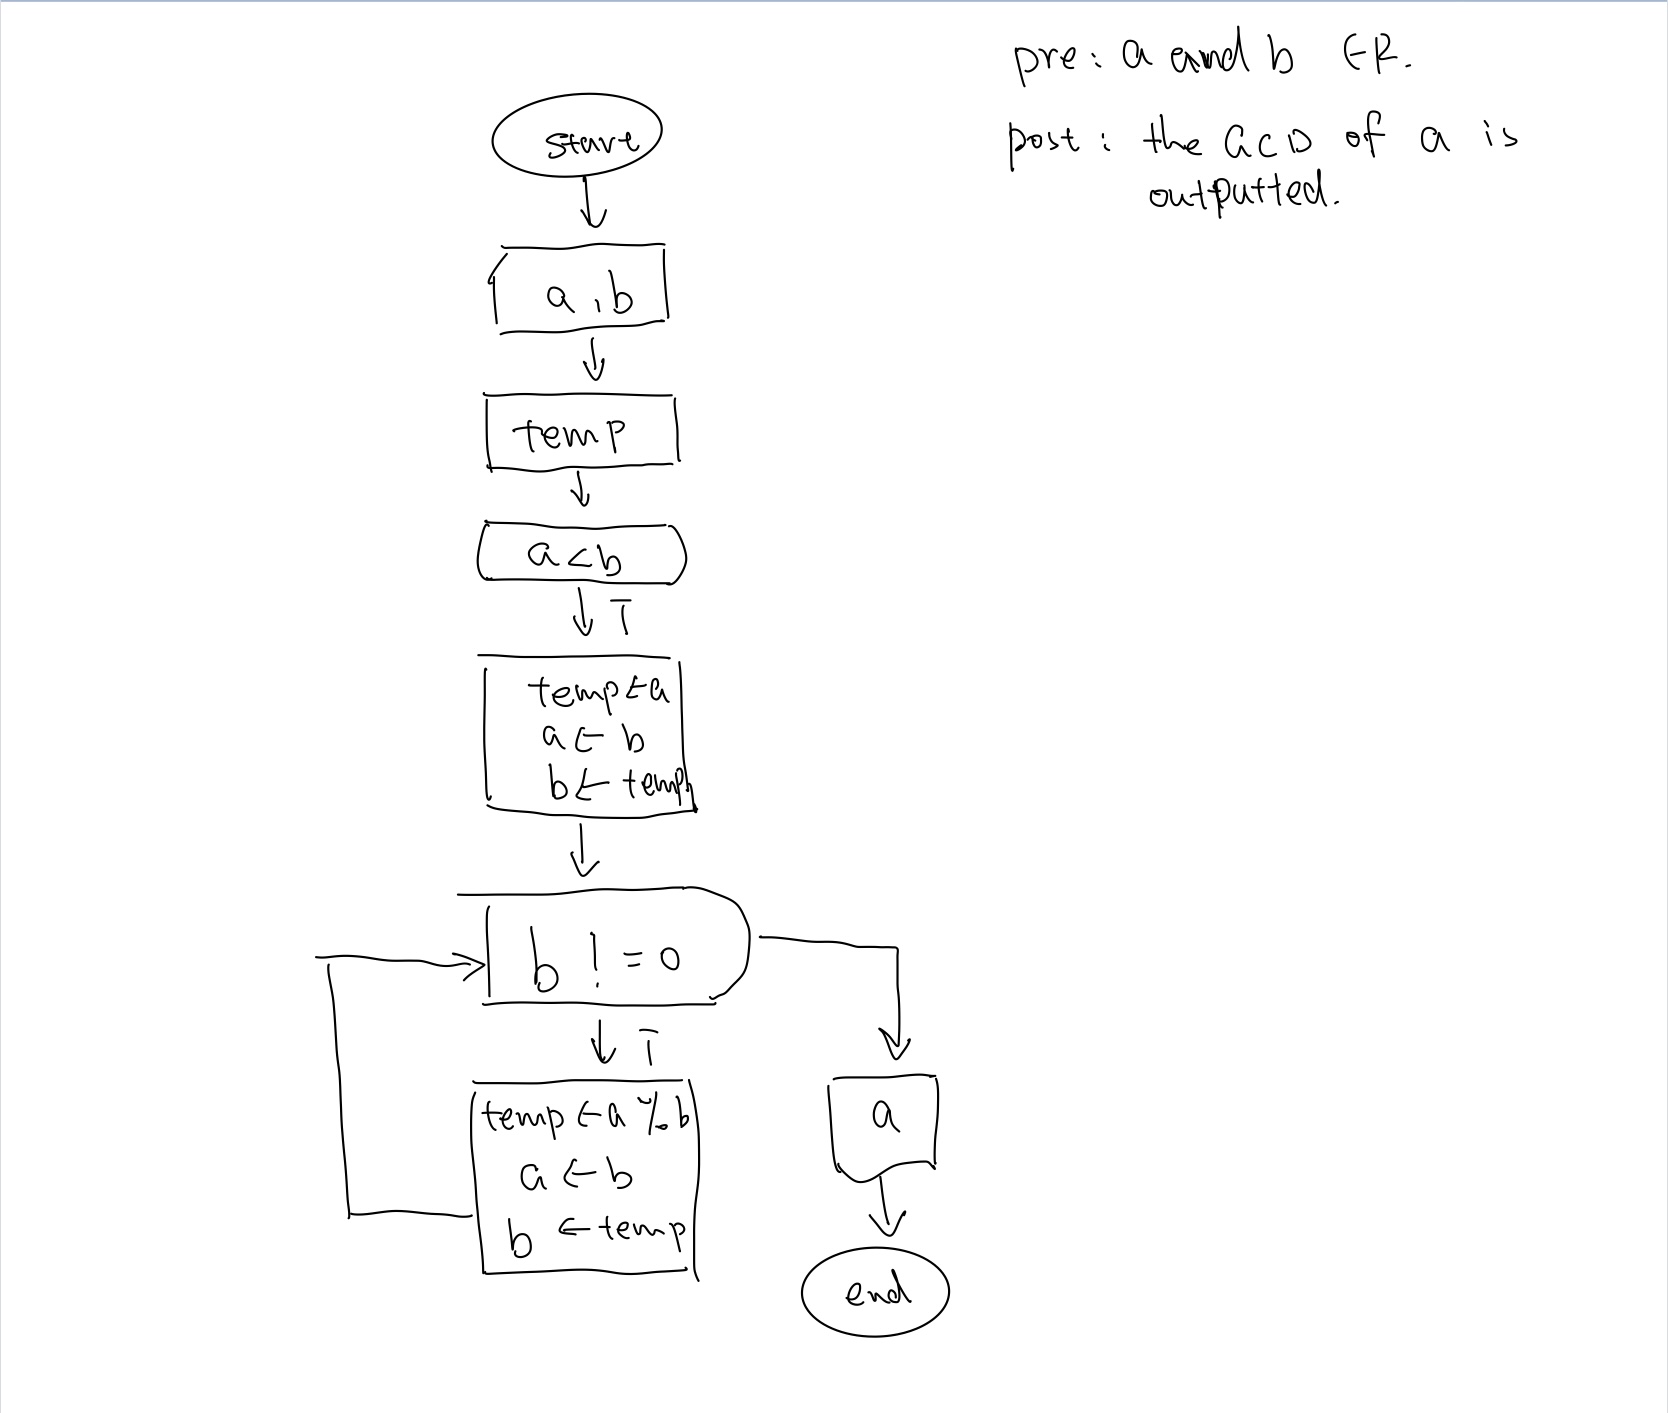 pre: a and b ∈R.
post: the GCD of a is
outputted.
start
a, b
temp
a<b
T
temp←a
a← b
b← temp
b != 0
T
temp ←a % b
a ←b
b ←temp
a
end